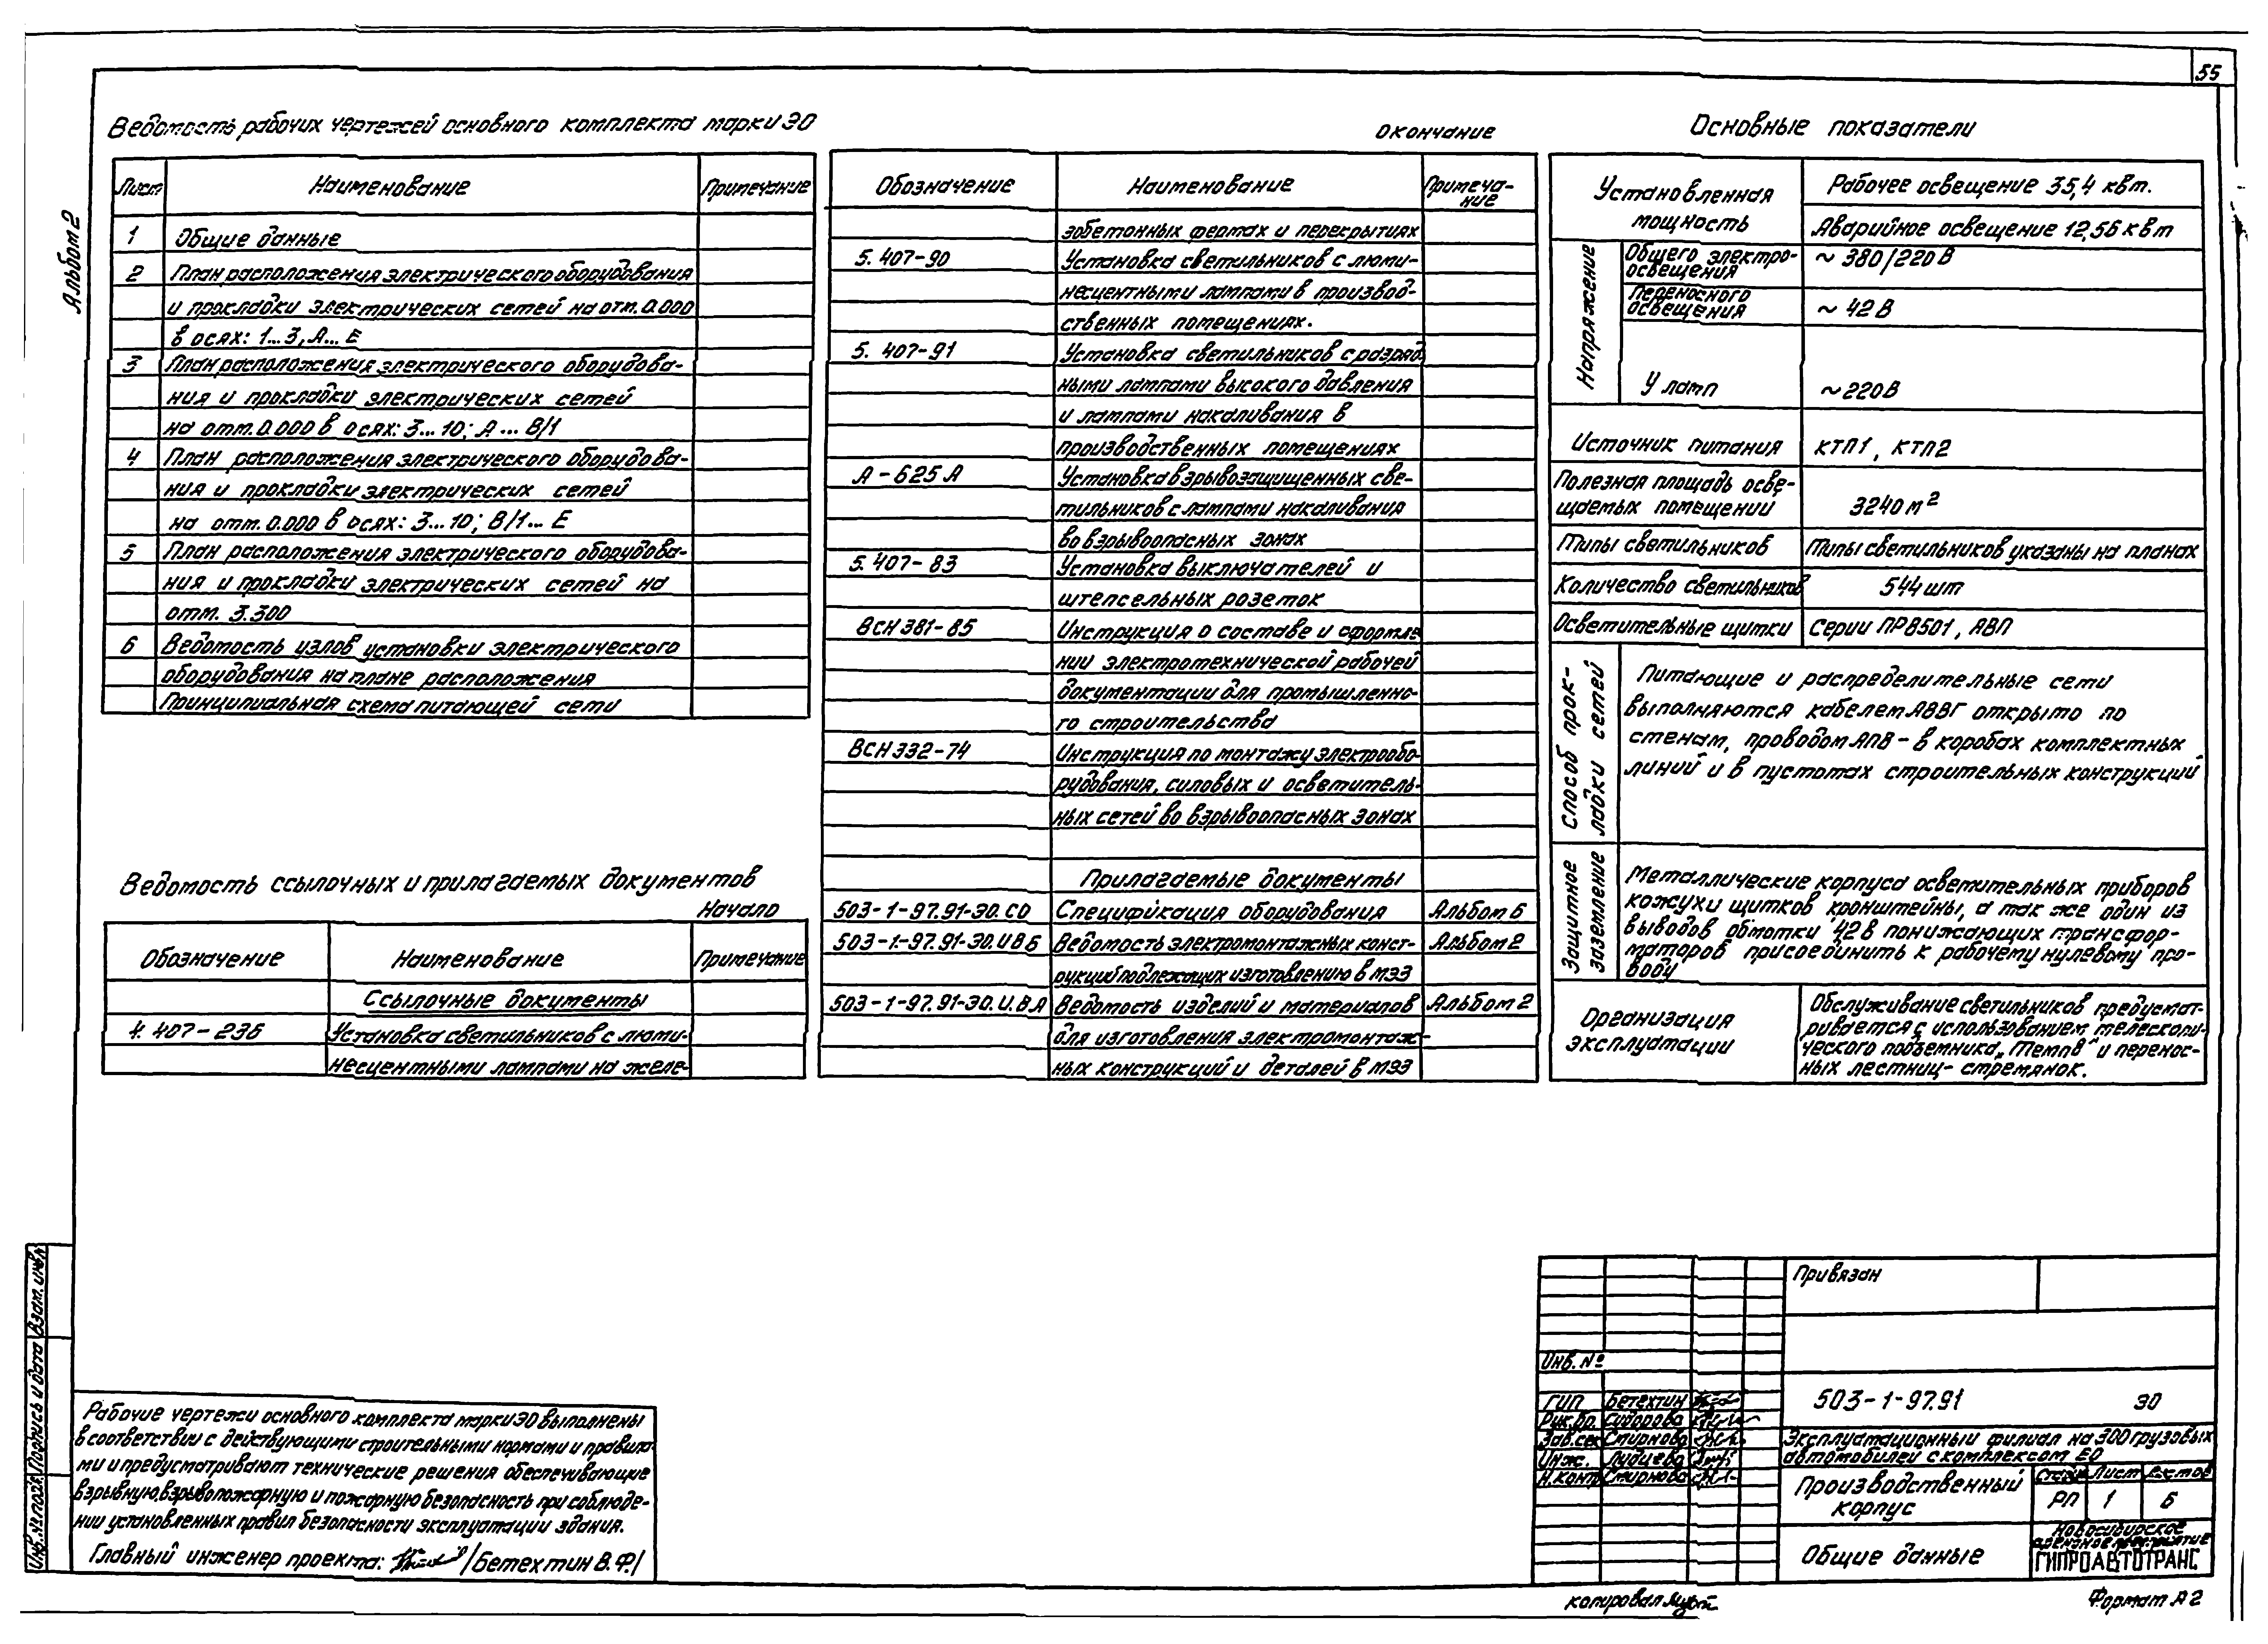 55
Альбом 2
Ведомость рабочих чертежей основного комплекта марки ЭО
Лист Наименование Примечание
1 Общие данные
2 План расположения электрического оборудования
и прокладки электрических сетей на отм. 0.000
в осях: 1...3, А... Е
3 План расположения электрического оборудова-
ния и прокладки электрических сетей
на отм. 0.000 в осях: 3... 10; А ... В/1
4 План расположения электрического оборудова-
ния и прокладки электрических сетей
на отм. 0.000 в осях: 3... 10; В/1... Е
5 План расположения электрического оборудова-
ния и прокладки электрических сетей на
отм. 3.300
6 Ведомость узлов установки электрического
оборудования на плане расположения
Принципиальная схема питающей сети
Ведомость ссылочных и прилагаемых документов
Начало
Обозначение Наименование Примечание
Ссылочные документы
4. 407-236 Установка светильников с люми-
несцентными лампами на желе-
Окончание
Обозначение Наименование Примеча-
ние
зобетонных фермах и перекрытиях
5. 407-90 Установка светильников с люми-
несцентными лампами в производ-
ственных помещениях.
5. 407-91 Установка светильников с разряд
ными лампами высокого давления
и лампами накаливания в
производственных помещениях
А-625 А Установка взрывозащищенных све-
тильников с лампами накаливания
во взрывоопасных зонах
5. 407-83 Установка выключателей и
штепсельных розеток
ВСН 381-85 Инструкция о составе и оформле
нии электротехнической рабочей
документации для промышленно-
го строительства
ВСН 332-74 Инструкция по монтажу электрообо-
рудования, силовых и осветитель-
ных сетей во взрывоопасных зонах
Прилагаемые документы
503-1-97.91-ЭО. СО Спецификация оборудования Альбом 6
503-1-97.91-ЭО. И В Б Ведомость электромонтажных конст- Альбом 2
рукций подлежащих изготовлению в МЭЗ
503-1-97.91-ЭО. И. В А Ведомость изделий и материалов Альбом 2
для изготовления электромонтаж-
ных конструкций и деталей в МЭЗ
Основные показатели
Установленная
мощность
Рабочее освещение 35,4 квт.
Аварийное освещение 12,56 квт
Напряжение
Общего электро-
освещения ~ 380/220 В
Переносного
освещения ~ 42 В
У ламп ~220 В
Источник питания КТП1, КТП2
Полезная площадь осве-
щаемых помещений 3240 м2
Типы светильников Типы светильников указаны на планах
Количество светильников 544 шт
Осветительные щитки Серии ПР8501, ЯВП
Способ прок-
ладки сетей
Питающие и распределительные сети
выполняются кабелем АВВГ открыто по
стенам, проводом АПВ - в коробах комплектных
линий и в пустотах строительных конструкций
Защитное
заземление
Металлические корпуса осветительных приборов
кожухи щитков, кронштейны, а так же один из
выводов обмотки 42 В понижающих трансфор-
маторов присоединить к рабочему нулевому про-
воду
Организация
эксплуатации
Обслуживание светильников предусмат-
ривается с использованием телескопи-
ческого подъемника „Темп В" и перенос-
ных лестниц- стремянок.
Взам. инв.
Подпись и дата
Инв. № подл.
Рабочие чертежи основного комплекта марки ЭО выполнены
в соответствии с действующими строительными нормами и правила-
ми и предусматривают технические решения обеспечивающие
взрывную, взрывопожарную и пожарную безопасность при соблюде-
нии установленных правил безопасности эксплуатации здания.
Главный инженер проекта: /Бетехтин В. Ф./
Привязан
Инв. №
ГИП Бетехтин
Рук. бр. Сидорова
Зав. сек Смирнова
Инж.
Н. конт. Смирнова
503-1-97.91 ЭО
Эксплуатационный филиал на 300 грузовых
автомобилей с комплексом ЕО
Производственный
корпус
Стадия Лист Листов
РП 1 6
Общие данные
Новосибирское
арендное предприятие
ГИПРОАВТОТРАНС
копировал
Формат А2